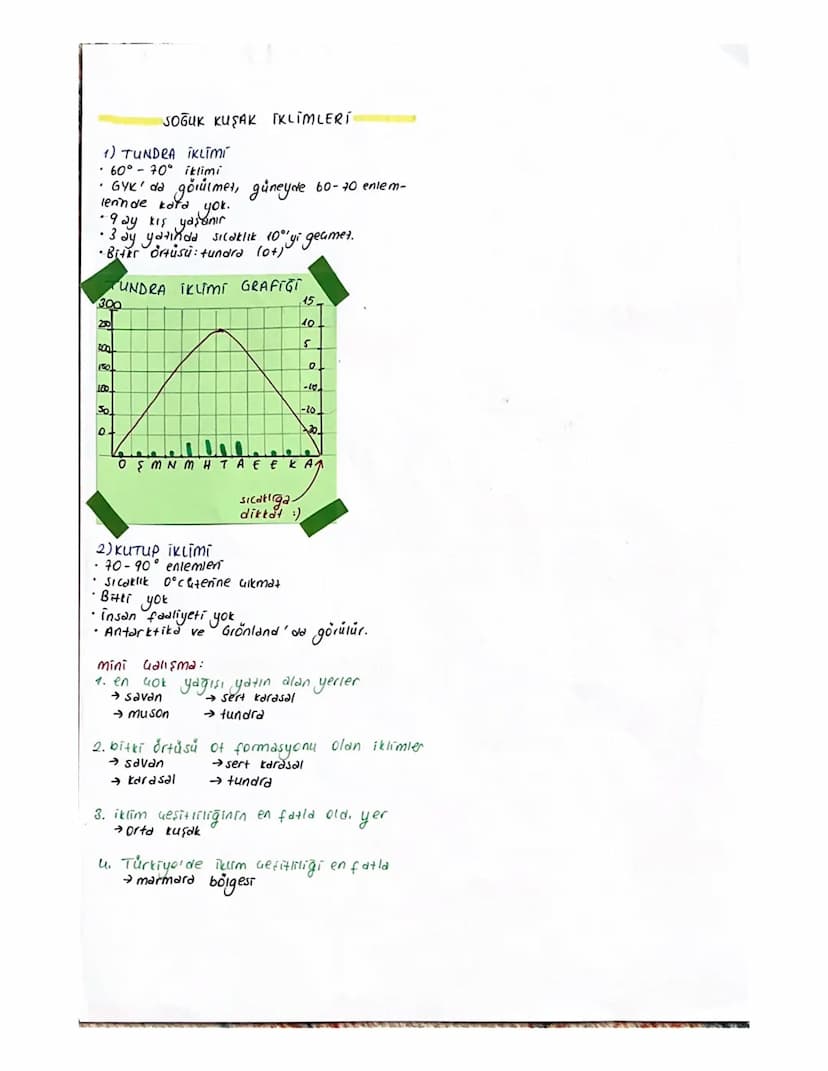 SOĞUK KUŞAK İKLİMLERİ
1) TUNDRA İKLİMİ
• 60° - 70° iklimi
• GYK'da görülmez, güneyde 60-70 enlem-
lerinde kara yok.
• 9 ay kış yaşanır
• 3 ay yazında sıcaklık 10°'yi geçmez.
• Bitki örtüsü: tundra (ot)
TUNDRA İKLİMİ GRAFİĞİ
300 15
250 10
200 5
150 0
100 -10
50 -20
0 -30
O Ş M N M H T A E E K A
sıcaklığa
dikkat :)
2) KUTUP İKLİMİ
• 70-90° enlemleri
• Sıcaklık 0°C üzerine çıkmaz
• Bitki yok
• İnsan faaliyeti yok
• Antarktika ve Grönland'da görülür.
mini çalışma:
1. en çok yağışı yazın alan yerler
→ savan → sert karasal
→ muson → tundra
2. bitki örtüsü ot formasyonu olan iklimler
→ savan → sert karasal
→ karasal → tundra
3. iklim çeşitliliğinin en fazla old. yer
→ orta kuşak
4. Türkiye'de iklim çeşitliliği en fazla
→ marmara bölgesi